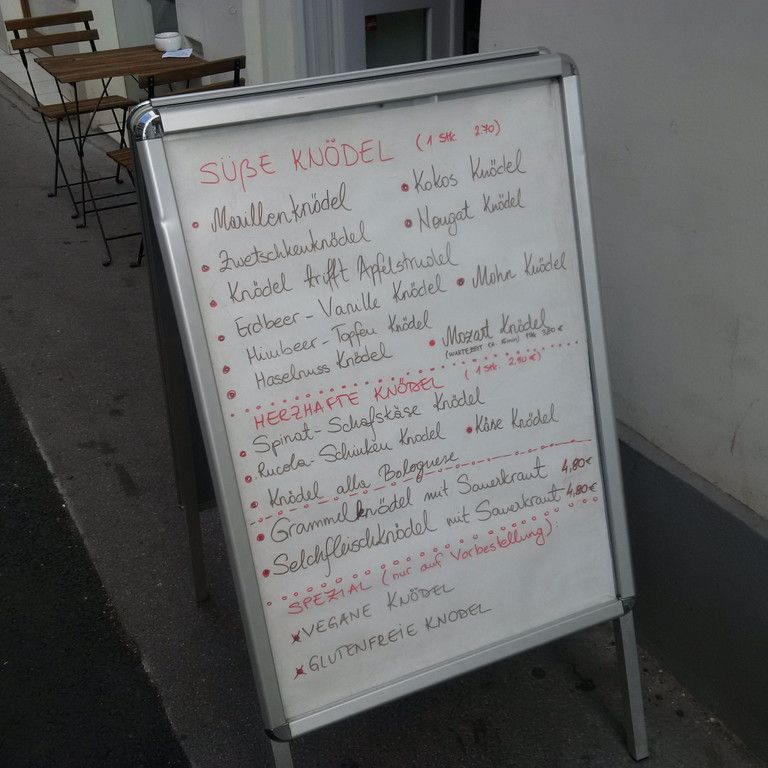 SÜßE KNÖDEL (1 Stk. 2.70)
• Marillenknödel • Kokos Knödel
• Zwetschkenknödel • Nougat Knödel
• Knödel trifft Apfelstrudel
• Erdbeer-Vanille Knödel • Mohn Knödel
• Himbeer-Topfen Knödel
• Haselnuss Knödel • Mozart Knödel
(WARTEZEIT ca. 15min) 1Stk 3,80€
HERZHAFTE KNÖDEL (1 Stk. 2.90€)
• Spinat-Schafskäse Knödel
• Rucola-Schinken Knödel • Käse Knödel
• Knödel alla Bolognese
• Grammelknödel mit Sauerkraut 4,80€
• Selchfleischknödel mit Sauerkraut 4,80€
SPEZIAL (nur auf Vorbestellung):
x VEGANE KNÖDEL
x GLUTENFREIE KNÖDEL